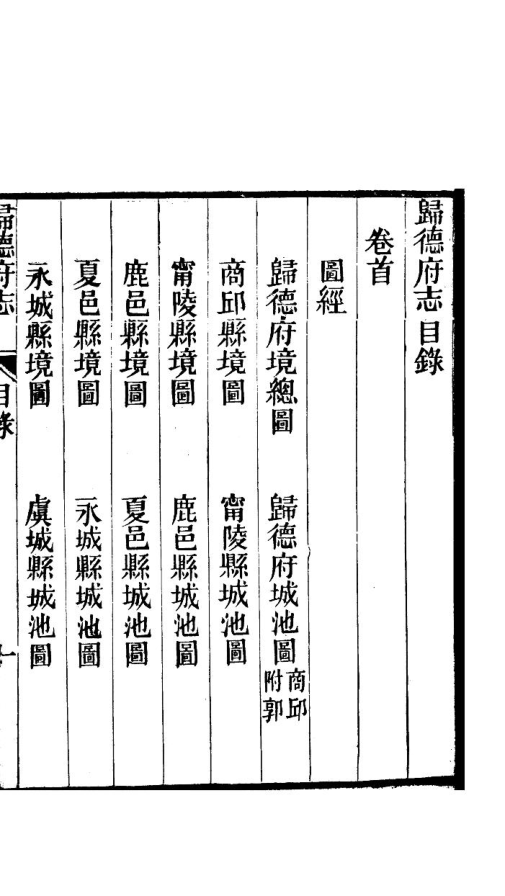 歸德府志目錄
卷首
圖經
歸德府境總圖 歸德府城池圖 商邱附郭
商邱縣境圖 甯陵縣城池圖
甯陵縣境圖 鹿邑縣城池圖
鹿邑縣境圖 夏邑縣城池圖
夏邑縣境圖 永城縣城池圖
永城縣境圖 虞城縣城池圖
歸德府志 目錄 一